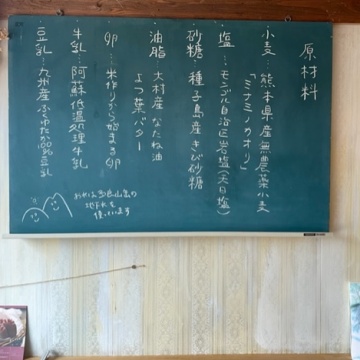 原材料
小麦…熊本県産無農薬小麦
「ミナミノカオリ」
塩…モンゴル自治区岩塩(天日塩)
砂糖…種子島産きび砂糖
油脂 大村産なたね油
よつ葉バター
卵…米作りから始まる卵
牛乳…阿蘇低温処理牛乳
豆乳…九州産ふくゆたか100%豆乳
お水は多良山系の
地下水を
使っています